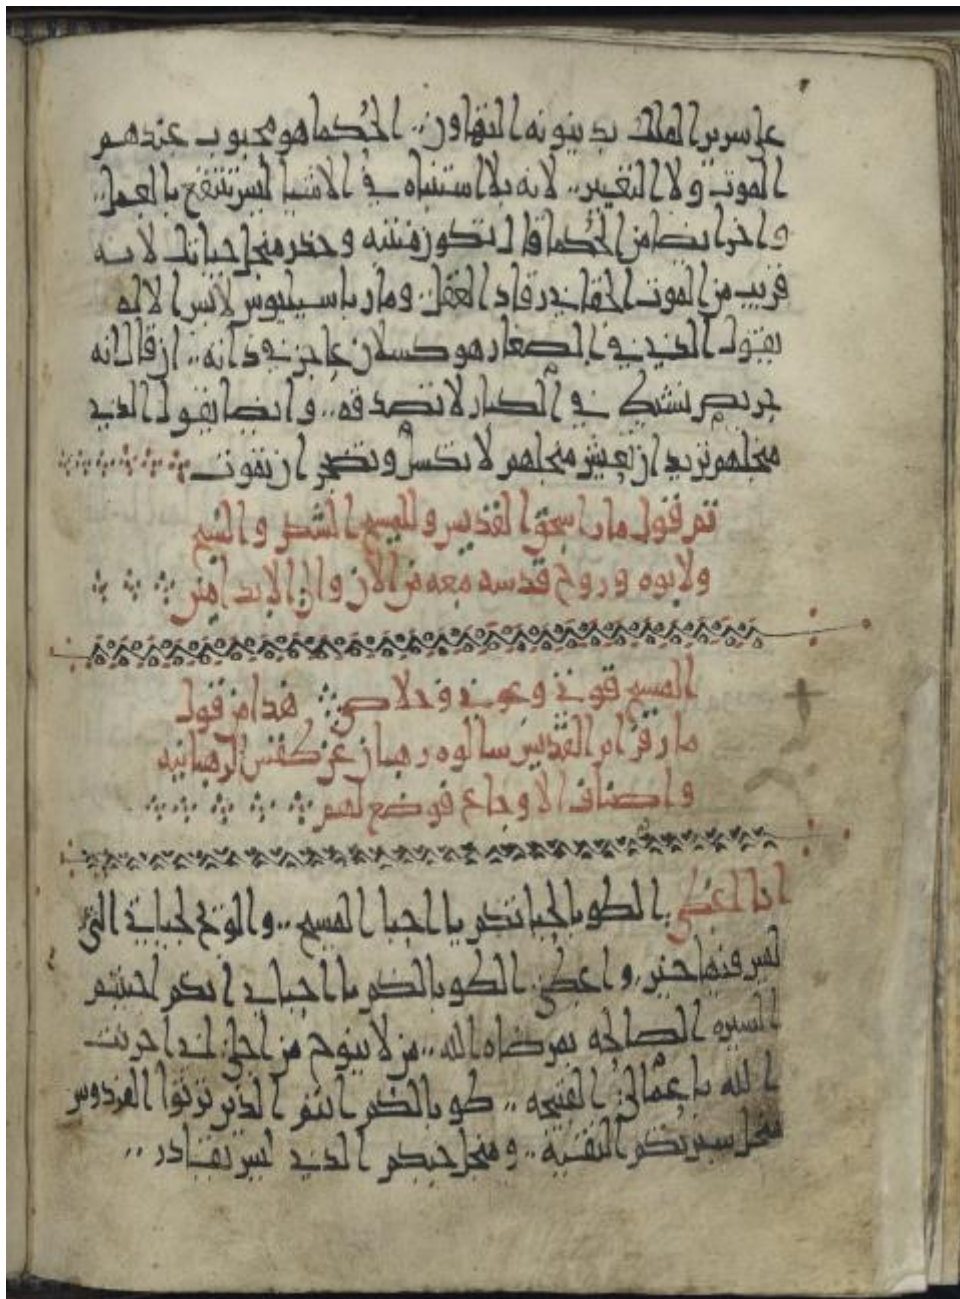 على سرير الملك بدينونه التهاون .. الحكما هو محبوب عندهم
الموت ولا التغيير .. لانه بلا استنباه في الاشيا ليس تنتفع بالعمل ..
واخر ايضا من الحكما قال تكون منتبه وحذر من اجل حياتك لانه
قريب من الموت الحقاني رقاد العقل . ومار باسيليوس لابس الاله
يقول الذي في الصغار هو كسلان عاجز في ذاته .. ان قال انه
حريص نشيط في الكبار لا تصدقه .. وايضا يقول الذي
من اجلهم تريد ان تعيش من اجلهم لا تكسل وتضجر ان تموت
تم قول مار اسحق القديس وللمسيح الشكر والسبح
ولابوه وروح قدسه معه من الان والى الابد امين
المسيح قوتي وعوني وخلاصي هذا من قول
مار افرام القديس سالوه رهبان عن طقس الرهبانيه
واصناف الاوجاع فوضع لهم
انا اعطي الطوبا لحياتكم يا احبا المسيح .. والويح لحياتي التي
ليس فيها خير . واعطي الطوبا لكم يا احباي انكم احببتم
السيره الصالحه بمرضاه الله .. من لا ينوح من اجلي لاني احزنت
الله باعمالي القبيحه .. طوبا لكم انتم الذين ترثوا الفردوس
من اجل سيرتكم النقيه .. ومن اجل حبكم الذي ليس يقادر ..